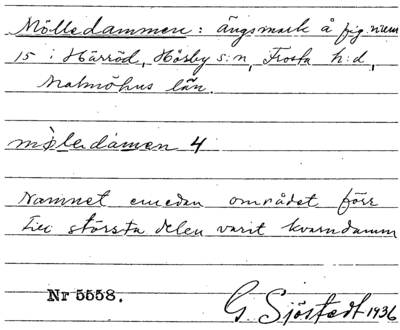 Mölledammen: ängsmark å fig. num
15 i Härröd, Hösby s:n, Frosta h:d,
Malmöhus län.
mòl̥edamen 4
Namnet emedan området förr
till största delen varit kvarndamm
Nr 5558.
G. Sjöstedt 1936